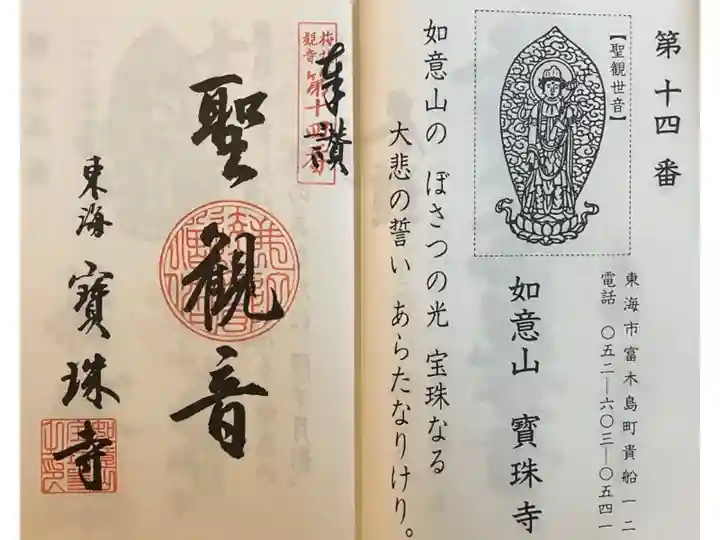 第十四番
【聖観世音】
東海市富木島町貴船一二
電話 〇五二―六〇三―〇五四一
如意山 寶珠寺
如意山の ぼさつの光 宝珠なる
大悲の誓い あらたなりけり。
奉讃
第十四番
聖観音
東海 寶珠寺